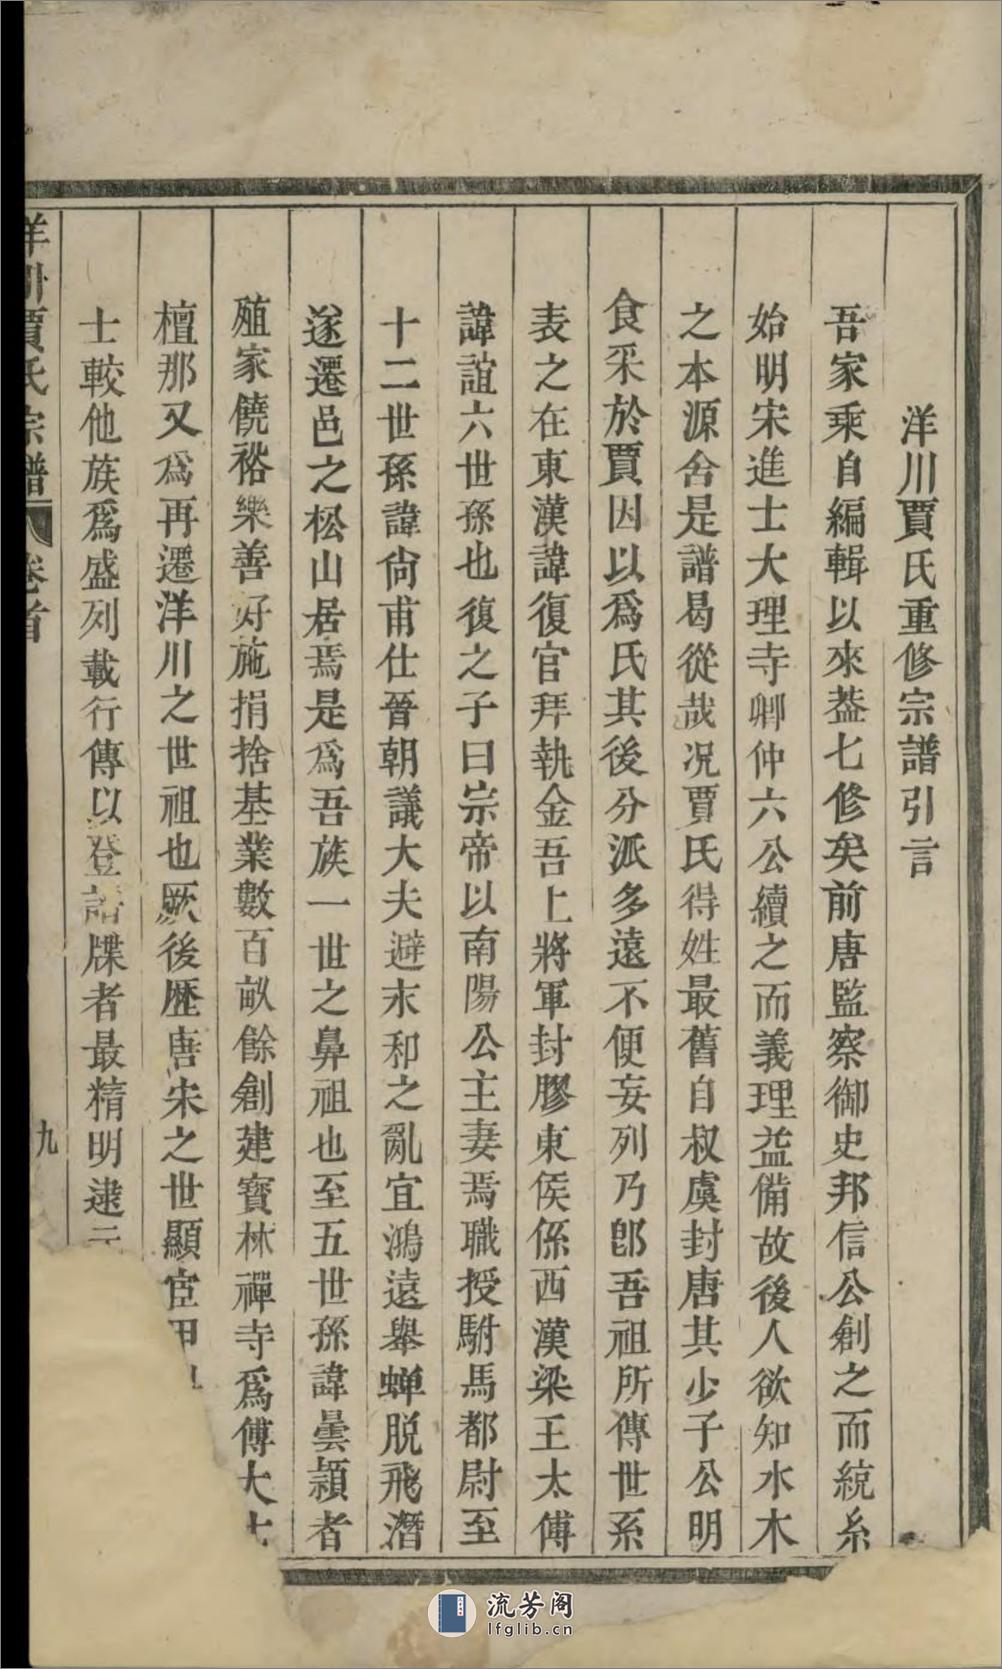 洋川賈氏重修宗譜引言
吾家乘自編輯以來葢七修矣前唐監察御史邦信公創之而統系
始明宋進士大理寺卿仲六公續之而義理益備故後人欲知水木
之本源舍是譜曷從哉况賈氏得姓最舊自叔虞封唐其少子公明
食采於賈因以爲氏其後分派多遠不便妄列乃卽吾祖所傳世系
表之在東漢諱復官拜執金吾上將軍封膠東侯係西漢梁王太傅
諱誼六世孫也復之子曰宗帝以南陽公主妻焉職授駙馬都尉至
十二世孫諱尙甫仕晉朝議大夫避末和之亂宜鴻遠舉蟬脱飛潛
遂遷邑之松山居焉是爲吾族一世之鼻祖也至五世孫諱曇穎者
殖家饒裕樂善好施捐捨基業數百畝餘創建寳林禪寺爲傅大士
檀那又爲再遷洋川之世祖也厥後歴唐宋之世顯宦甲
士較他族爲盛列載行傳以登譜牒者最精明逮元
洋川賈氏宗譜 卷首
九
流芳阁
lfglib.cn